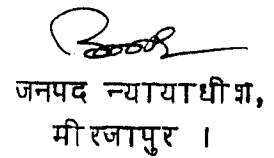 जनपद न्यायाधीश,
मीरजापुर ।